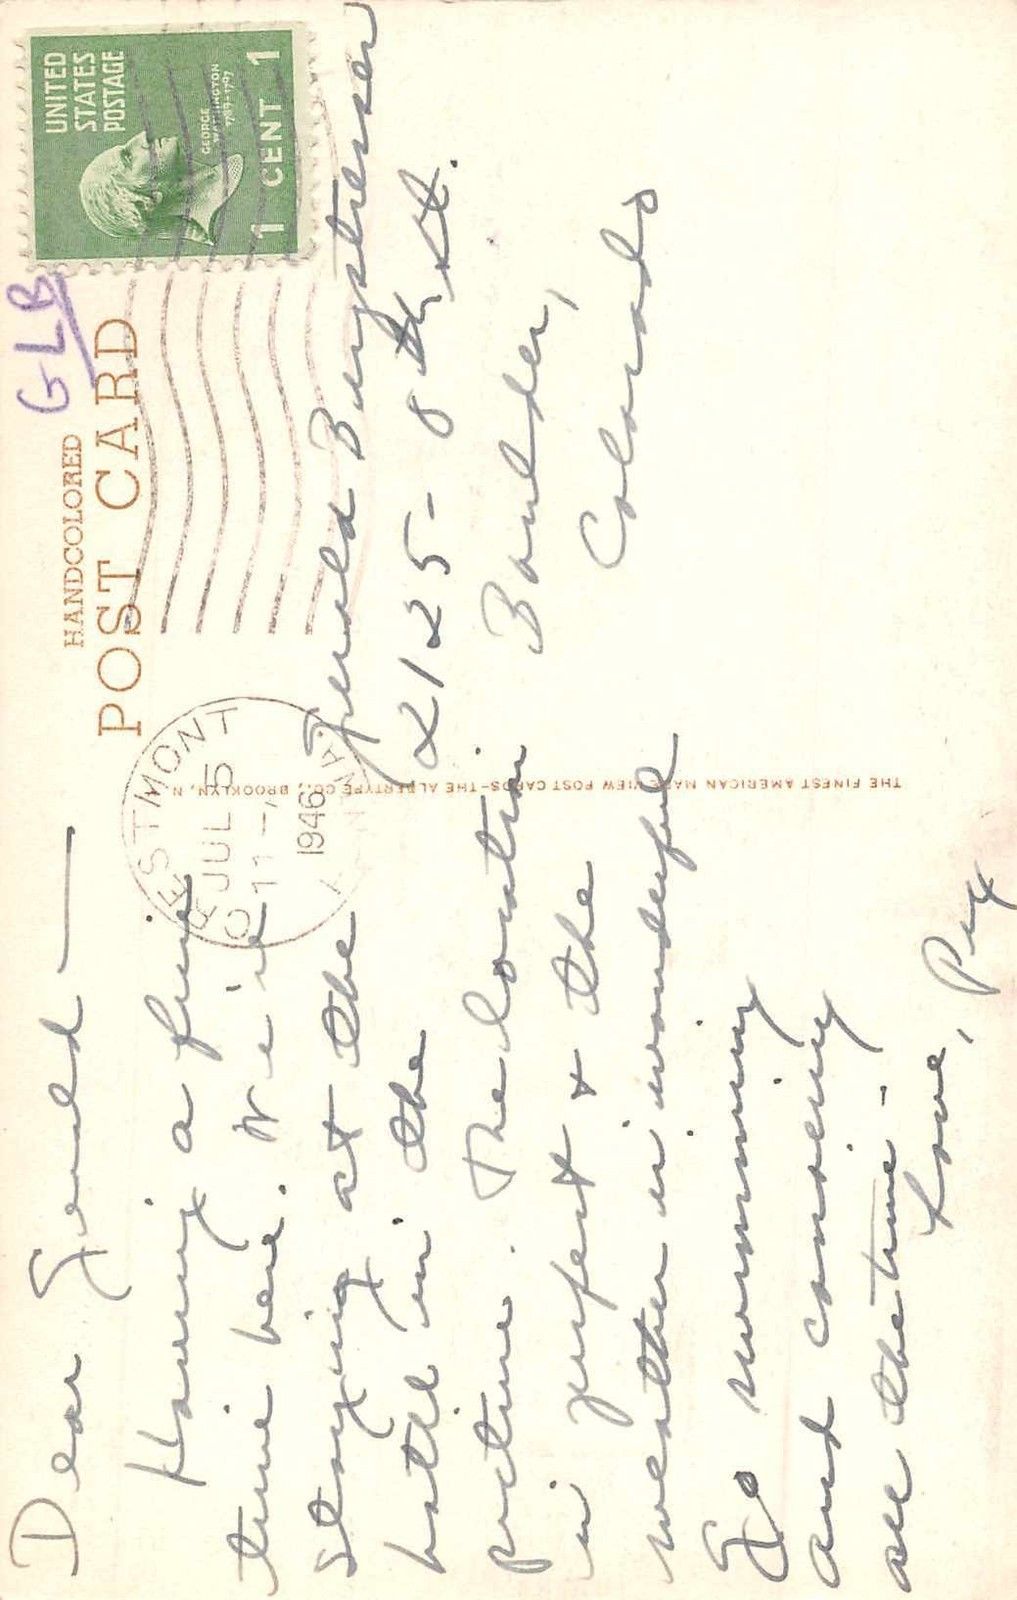 HANDCOLORED
POST CARD
GLB
UNITED
STATES
POSTAGE
GEORGE
WASHINGTON
1789-1797
1 CENT 1
JUL 5
11-
1946
THE FINEST AMERICAN MADE VIEW POST CARDS-THE ALBERTYPE CO., BROOKLYN, N.
Dear Gerald —
Having a fine
time here. We're
staying at the
hotel in the
picture. The location
is perfect & the
weather is wonderful
Go swimming
and canoeing
all the time -
Love, Peg
Gerald
2125 - 8th St.
Boulder,
Colorado